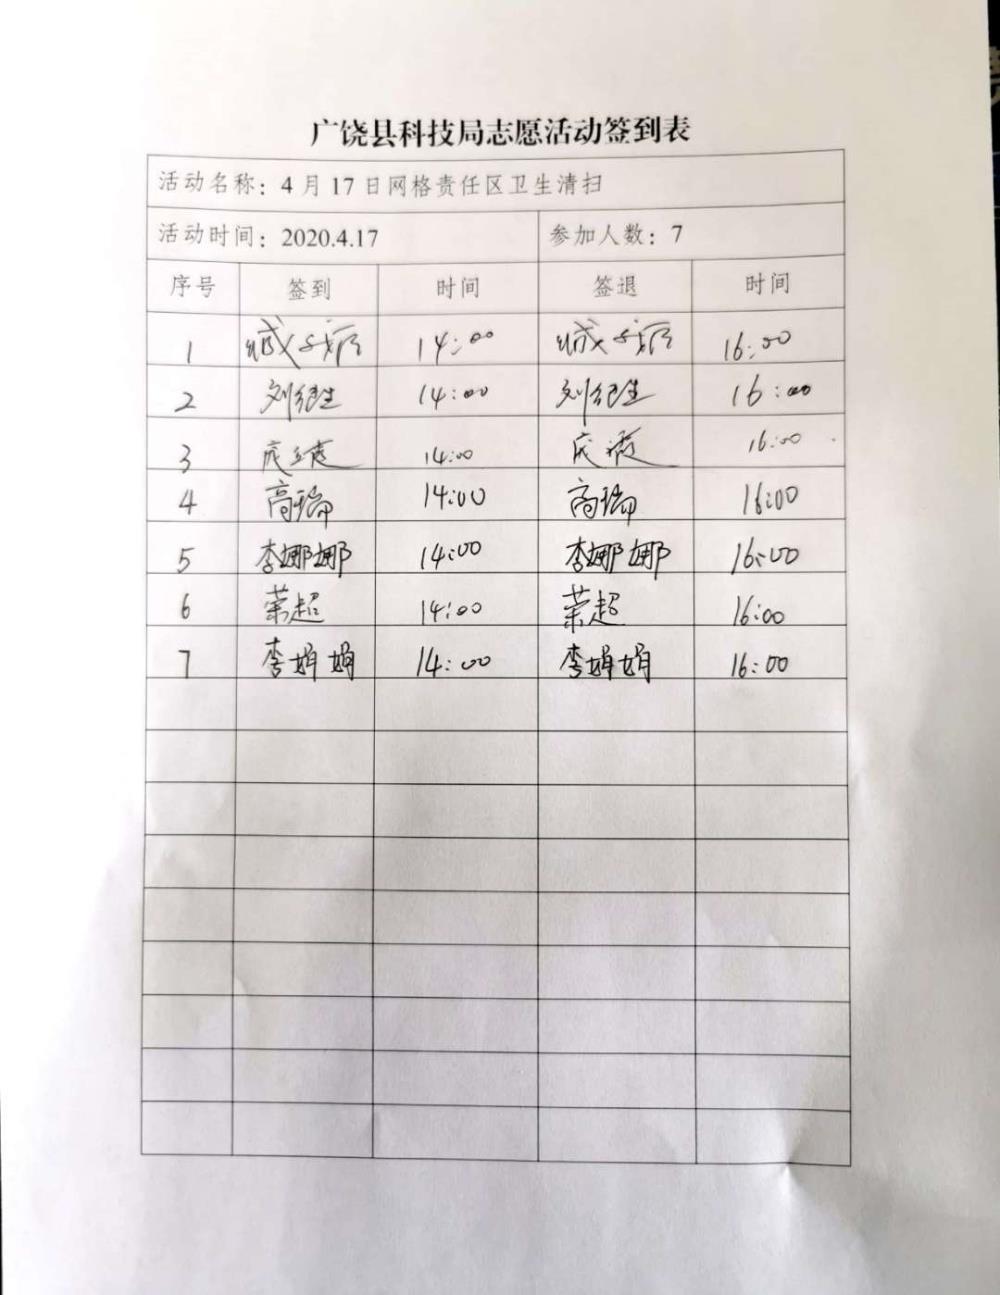 广饶县科技局志愿活动签到表
活动名称：4月17日网格责任区卫生清扫
活动时间：2020.4.17 参加人数：7
序号 签到 时间 签退 时间
1 14:00 16:00
2 14:00 16:00
3 14:00 16:00
4 高瑞 14:00 高瑞 16:00
5 李娜娜 14:00 李娜娜 16:00
6 荣超 14:00 荣超 16:00
7 李娟娟 14:00 李娟娟 16:00